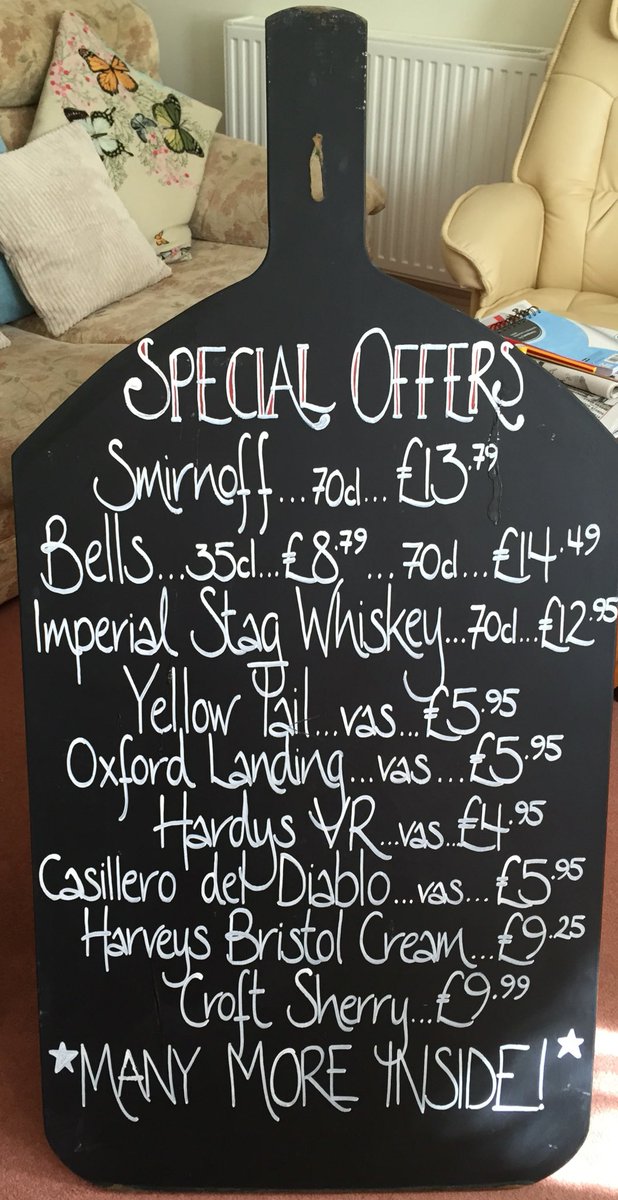 SPECIAL OFFERS
Smirnoff...70cl...£13.79
Bells...35cl...£8.79...70cl...£14.49
Imperial Stag Whiskey...70cl...£12.95
Yellow Tail...vas...£5.95
Oxford Landing...vas...£5.95
Hardys VR...vas...£4.95
Casillero del Diablo...vas...£5.95
Harveys Bristol Cream...£9.25
Croft Sherry...£9.99
★MANY MORE INSIDE!★